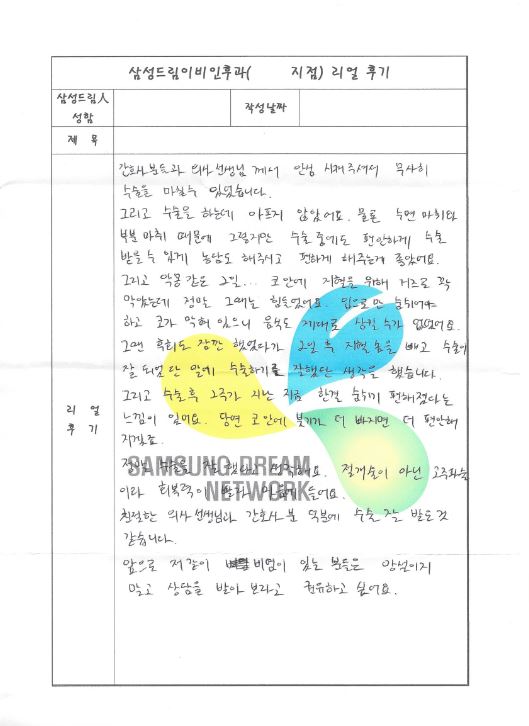 삼성드림이비인후과(      지점) 리얼 후기
삼성드림人 성함
작성날짜
제 목
리 얼 후 기
간호사분들과 의사선생님 께서 안심 시켜주셔서 무사히
수술을 마칠수 있었습니다.
그리고 수술을 하는데 아프지 않았어요. 물론 수면 마취와
부분 마취 때문에 그렇지만 수술 중에도 편안하게 수술
받을 수 있게 농담도 해주시고 편하게 해주는게 좋았어요.
그리고 악몽같은 2일... 코안에 지혈을 위해 거즈로 꽉
막았는데 정말 그때는 힘들었어요. 입으로만 숨쉬어야
하고 코가 막혀 있으니 음식도 제대로 삼킬 수가 없었어요.
그땐 후회도 잠깐 했었다가 2일 후 지혈 솜을 빼고 수술이
잘 되었단 말에 수술하기를 잘했단 생각을 했습니다.
그리고 수술후 2주가 지난 지금 한결 숨쉬기 편해졌다는
느낌이 있어요. 당연 코안에 붓기가 더 빠지면 더 편안해
지겠죠.
수술 잘 했다고 생각해요. 절개술이 아닌 고주파술
이라 회복력이 들어요.
SAMSUNG DREAM
NETWORK
친절한 의사선생님과 간호사 분 덕분에 수술 잘 받은것
같습니다.
앞으로 저같이 비염이 있는 분들은 망설이지
말고 상담을 받아 보라고 권유하고 싶어요.